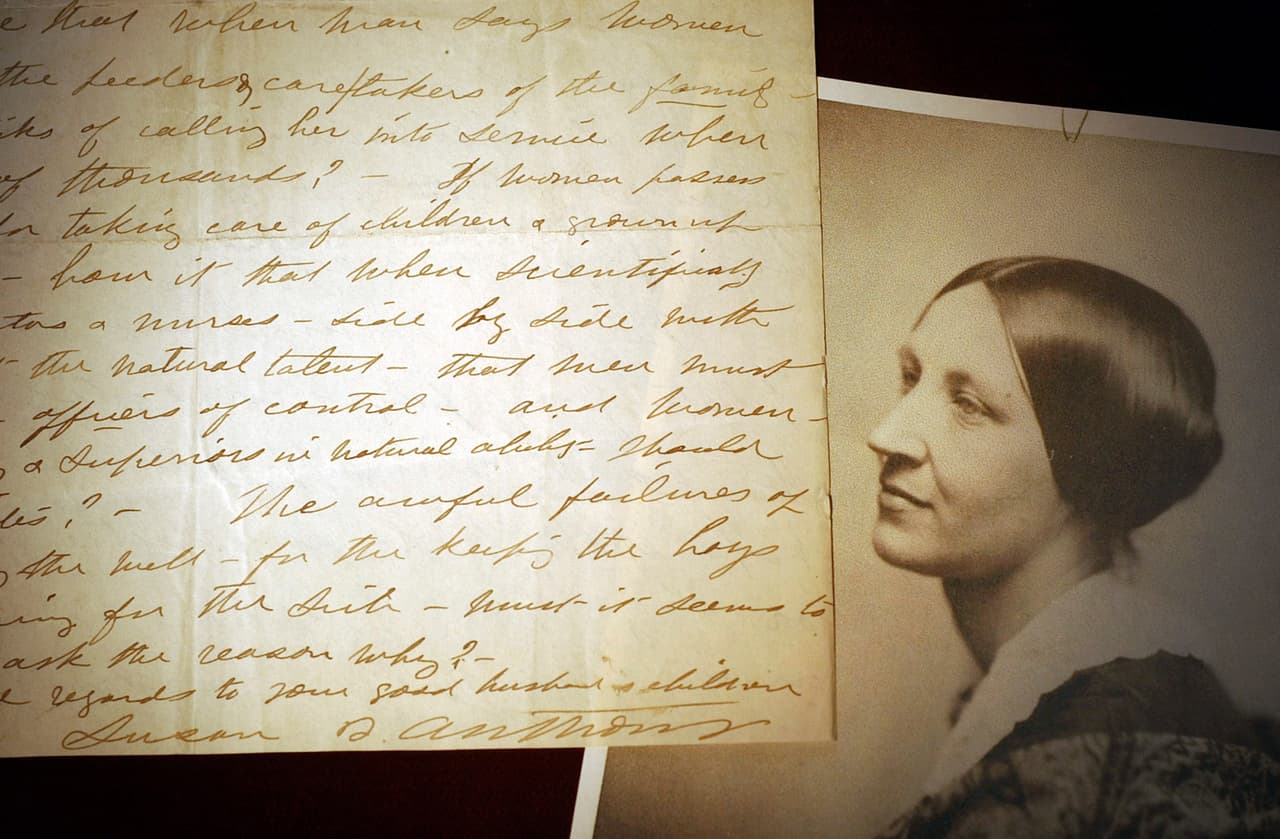 e that when man says women
the feeders & caretakers of the
of calling her into service when
of thousands? – If women possess
for taking care of children & grown up
– how is it that when scientifically
& nurses – side by side with
the natural talent – that men must
officers of control – and women –
& superiors in natural ability – should
? – The awful failures of
the well – for the keep'g the boys
ing for the sick – must it seems to
ask the reason why? –
e regards to your good husband & children
Susan B. Anthony